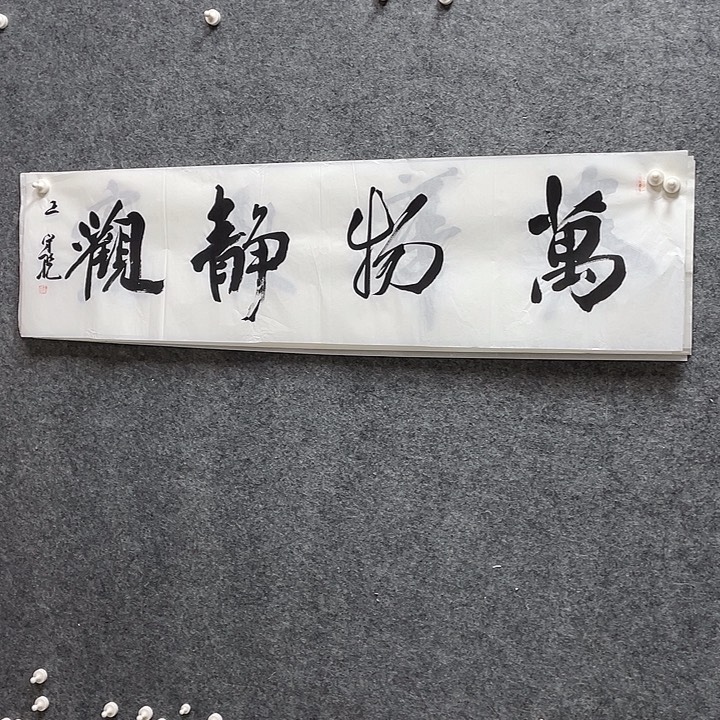 萬物靜觀